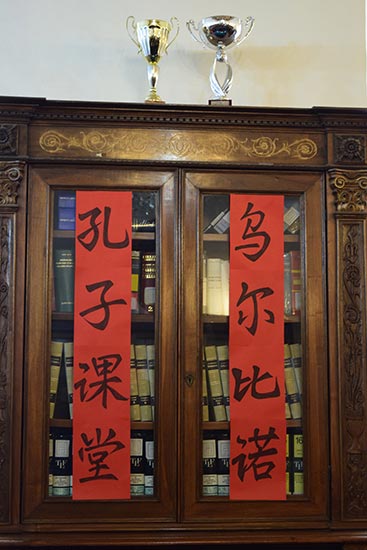 孔子课堂
乌尔比诺